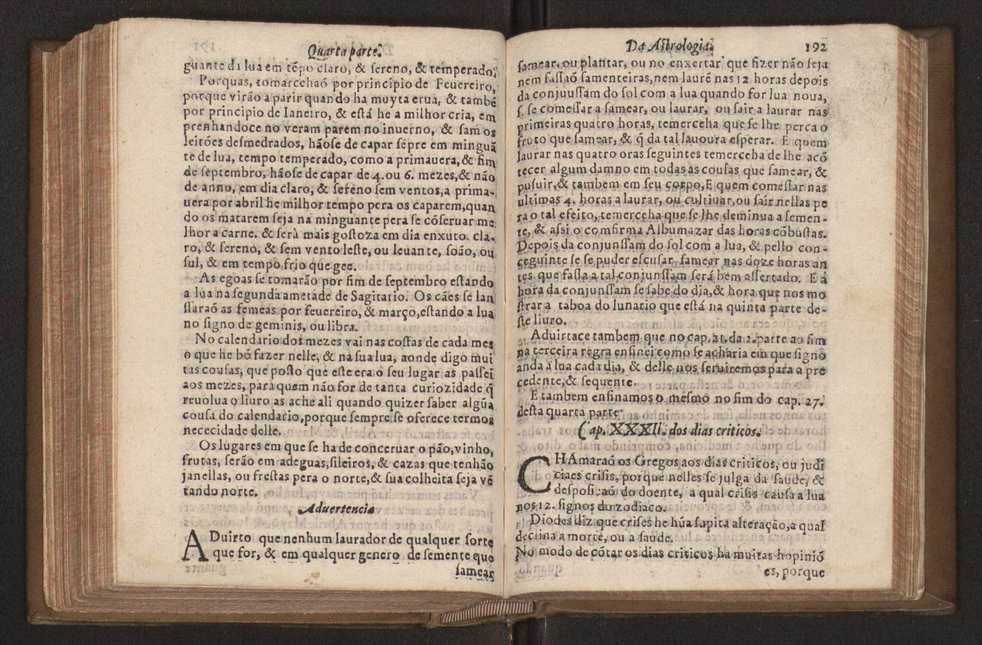 Quarta parte.
guante da lua em tẽpo claro, & sereno, & temperado,
Porquas, tomarcehaõ por principio de Feuereiro,
porque virão a parir quando ha muyta erua, & tambẽ
por principio de Ianeiro, & está he a milhor cria, em
prenhandoce no veram parem no inuerno, & sam os
leitões desmedrados, hãose de capar sẽpre em minguã
te de lua, tempo temperado, como a primauera, & fim
de septembro, hãose de capar de 4. ou 6. mezes, & não
de anno, em dia claro, & sereno sem ventos, a prima-
uera por abril he milhor tempo pera os caparem, quan
do os matarem seja na minguante pera se cõseruar me
lhor a carne. & serà mais gostoza em dia enxuto. cla-
ro, & sereno, & sem vento leste, ou leuante, soão, ou
sul, & em tempo frio que gee.
As egoas se tomarão por fim de septembro estando
a lua na segunda ametade de Sagitario. Os cães se lan
ssaraõ as femeas por feuereiro, & março, estando a lua
no signo de geminis, ou libra.
No calendario dos mezes vai nas costas de cada mes
o que he bõ fazer nelle, & na sua lua, aonde digo mui
tas cousas, que posto que este era o seu lugar as passei
aos mezes, para quem não for de tanta curiozidade q̃
reuolua o liuro as ache ali quando quizer saber algũa
cousa do calendario, porque sempre se oferece termos
nececidade delle.
Os lugares em que se ha de conceruar o pão, vinho,
frutas, serão em adeguas, sileiros, & cazas que tenhão
janellas, ou frestas pera o norte, & sua colheita seja vẽ
tando norte.
Aduertencia
ADuirto que nenhum laurador de qualquer sorte
que for, & em qualquer genero de semente que
samear
Da Astrologia. 192
samear, ou plantar, ou no enxertar que fizer não seja
nem fassaõ samenteiras, nem laurẽ nas 12 horas depois
da conjuussam do sol com a lua quando for lua noua,
s. se comessar a samear, ou laurar, ou sair a laurar nas
primeiras quatro horas, temerceha que se lhe perca o
fruto que samear, & q̃ da tal lauoura esperar. E quem
laurar nas quatro oras seguintes temerceha de lhe acõ
tecer algum damno em todas as cousas que samear, &
pusuir, & tambem em seu corpo, E quem comessar nas
ultimas 4. horas a laurar, ou cultiuar, ou sair nellas pe
ra o tal efeito, temerceha que se lhe deminua a semen-
te, & assi o comfirma Albumazar das horas cõbustas.
Depois da conjunssam do sol com a lua, & pello con-
ceguinte se se puder escusar samear nas doze horas an
tes que fassa a tal conjunssam será bem assertado. E á
hora da conjunssam se sabe do dia, & hora que nos mo
strar a taboa do lunatio que está na quinta parte de-
ste liuro.
Aduirtace tambem que no cap. 21. da 2. parte ao fim
na terceira regra ensinei como se acharia em que signo
anda a lua cada dia, & delle nos seruiremos para a pre
cedente, & sequente.
E tambem ensinamos o mesmo no fim do cap. 27.
desta quarta parte.
Cap. XXXII. dos dias criticos.
CHAmaraõ os Gregos aos dias criticos, ou judi
ciaes crisis, porque nelles se julga da saude, &
desposiçaõ do doente, a qual crisis causa a lua
nos 12. signos do zodiaco.
Diodes diz que crises he hũa supita alteração, a qual
declina a morte, ou a saude.
No modo de cõtar os dias criticos ha muitas hopiniõ
es, porque